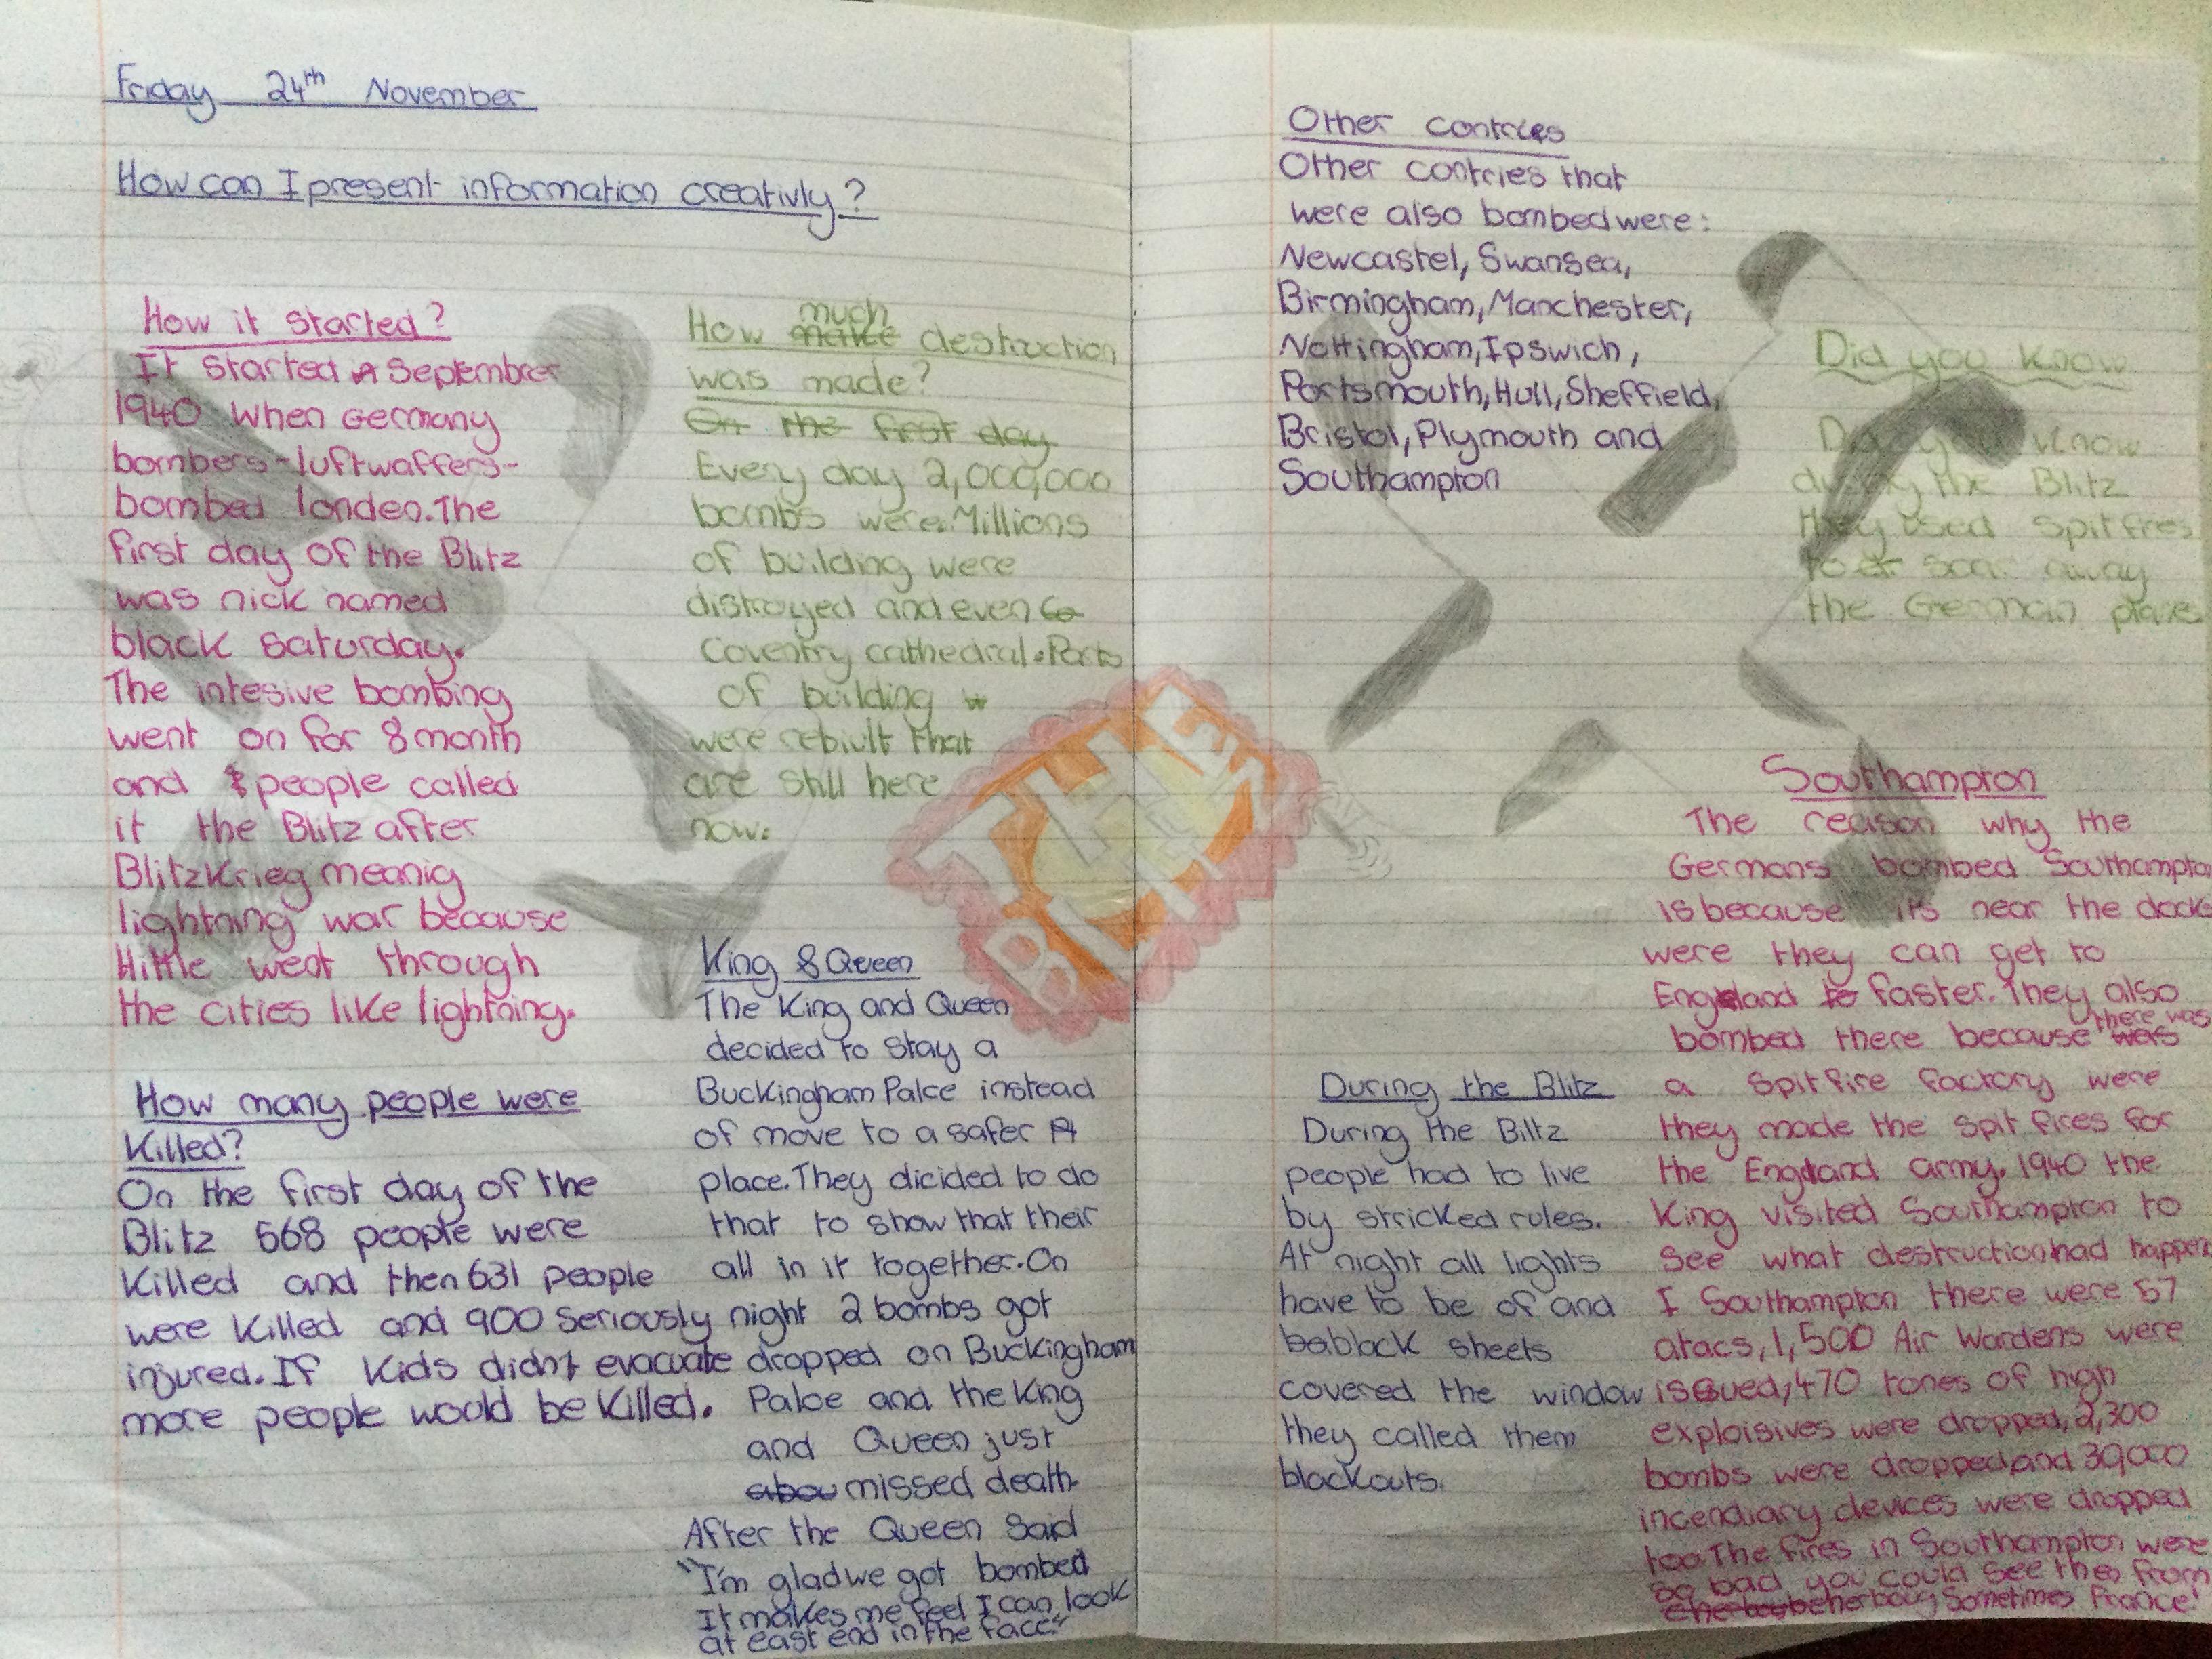 Friday 24th November
How can I present information creativly?
How it started?
It started in September
1940 when Germany
bombers-luftwaffers-
bombed londen. The
first day of the Blitz
was nick named
black saturday.
The intesive bombing
went on for 8 month
and people called
it the Blitz after
Blitzkrieg meanig
lightning war because
Hittle went through
the cities like lightning.
How many people were
Killed?
On the first day of the
Blitz 668 people were
killed and then 631 people
were killed and 900 seriously
injured. If kids didn't evacuate
more people would be killed.
How much destruction
was made?
On the first day
Every day 2,000,000
bombs were. Millions
of building were
distroyed and even Co
Coventry cathedral. Parts
of building w
were rebiult that
are still here
now.
King & Queen
The King and Queen
decided to stay a
Buckingham Palce instead
of move to a safer
place. They dicided to do
that to show that their
all in it together. On
night 2 bombs got
dropped on Buckingham
Palce and the King
and Queen just
abou missed death.
After the Queen said
"I'm glad we got bombed
It makes me feel I can look
at east end in the face."
THE
BLITZ
Other contries
Other contries that
were also bombed were:
Newcastel, Swansea,
Birmingham, Manchester,
Nottingham, Ipswich,
Portsmouth, Hull, Sheffield,
Bristol, Plymouth and
Southampton
During the Blitz
During the Biltz
people had to live
by stricked rules.
At night all lights
have to be of and
ba black sheets
covered the window
they called them
blackouts.
Did you know
Did you know
during the Blitz
they used spitfires
to scar away
the German planes
Southampton
The reason why the
Germans bombed Southampton
is because its near the docks
were they can get to
England to faster. They also
bombed there because there was
a spitfire factory were
they made the spit fires for
the England army. 1940 the
King visited Southampton to
see what destruction had happen
I Southampton there were 57
atacs, 1,500 Air Wardens were
issued, 470 tones of high
exploisives were dropped, 2,300
bombs were dropped and 30,000
incendiary devices were dropped
too. The fires in Southampton were
so bad you could see them from
Sometimes France!